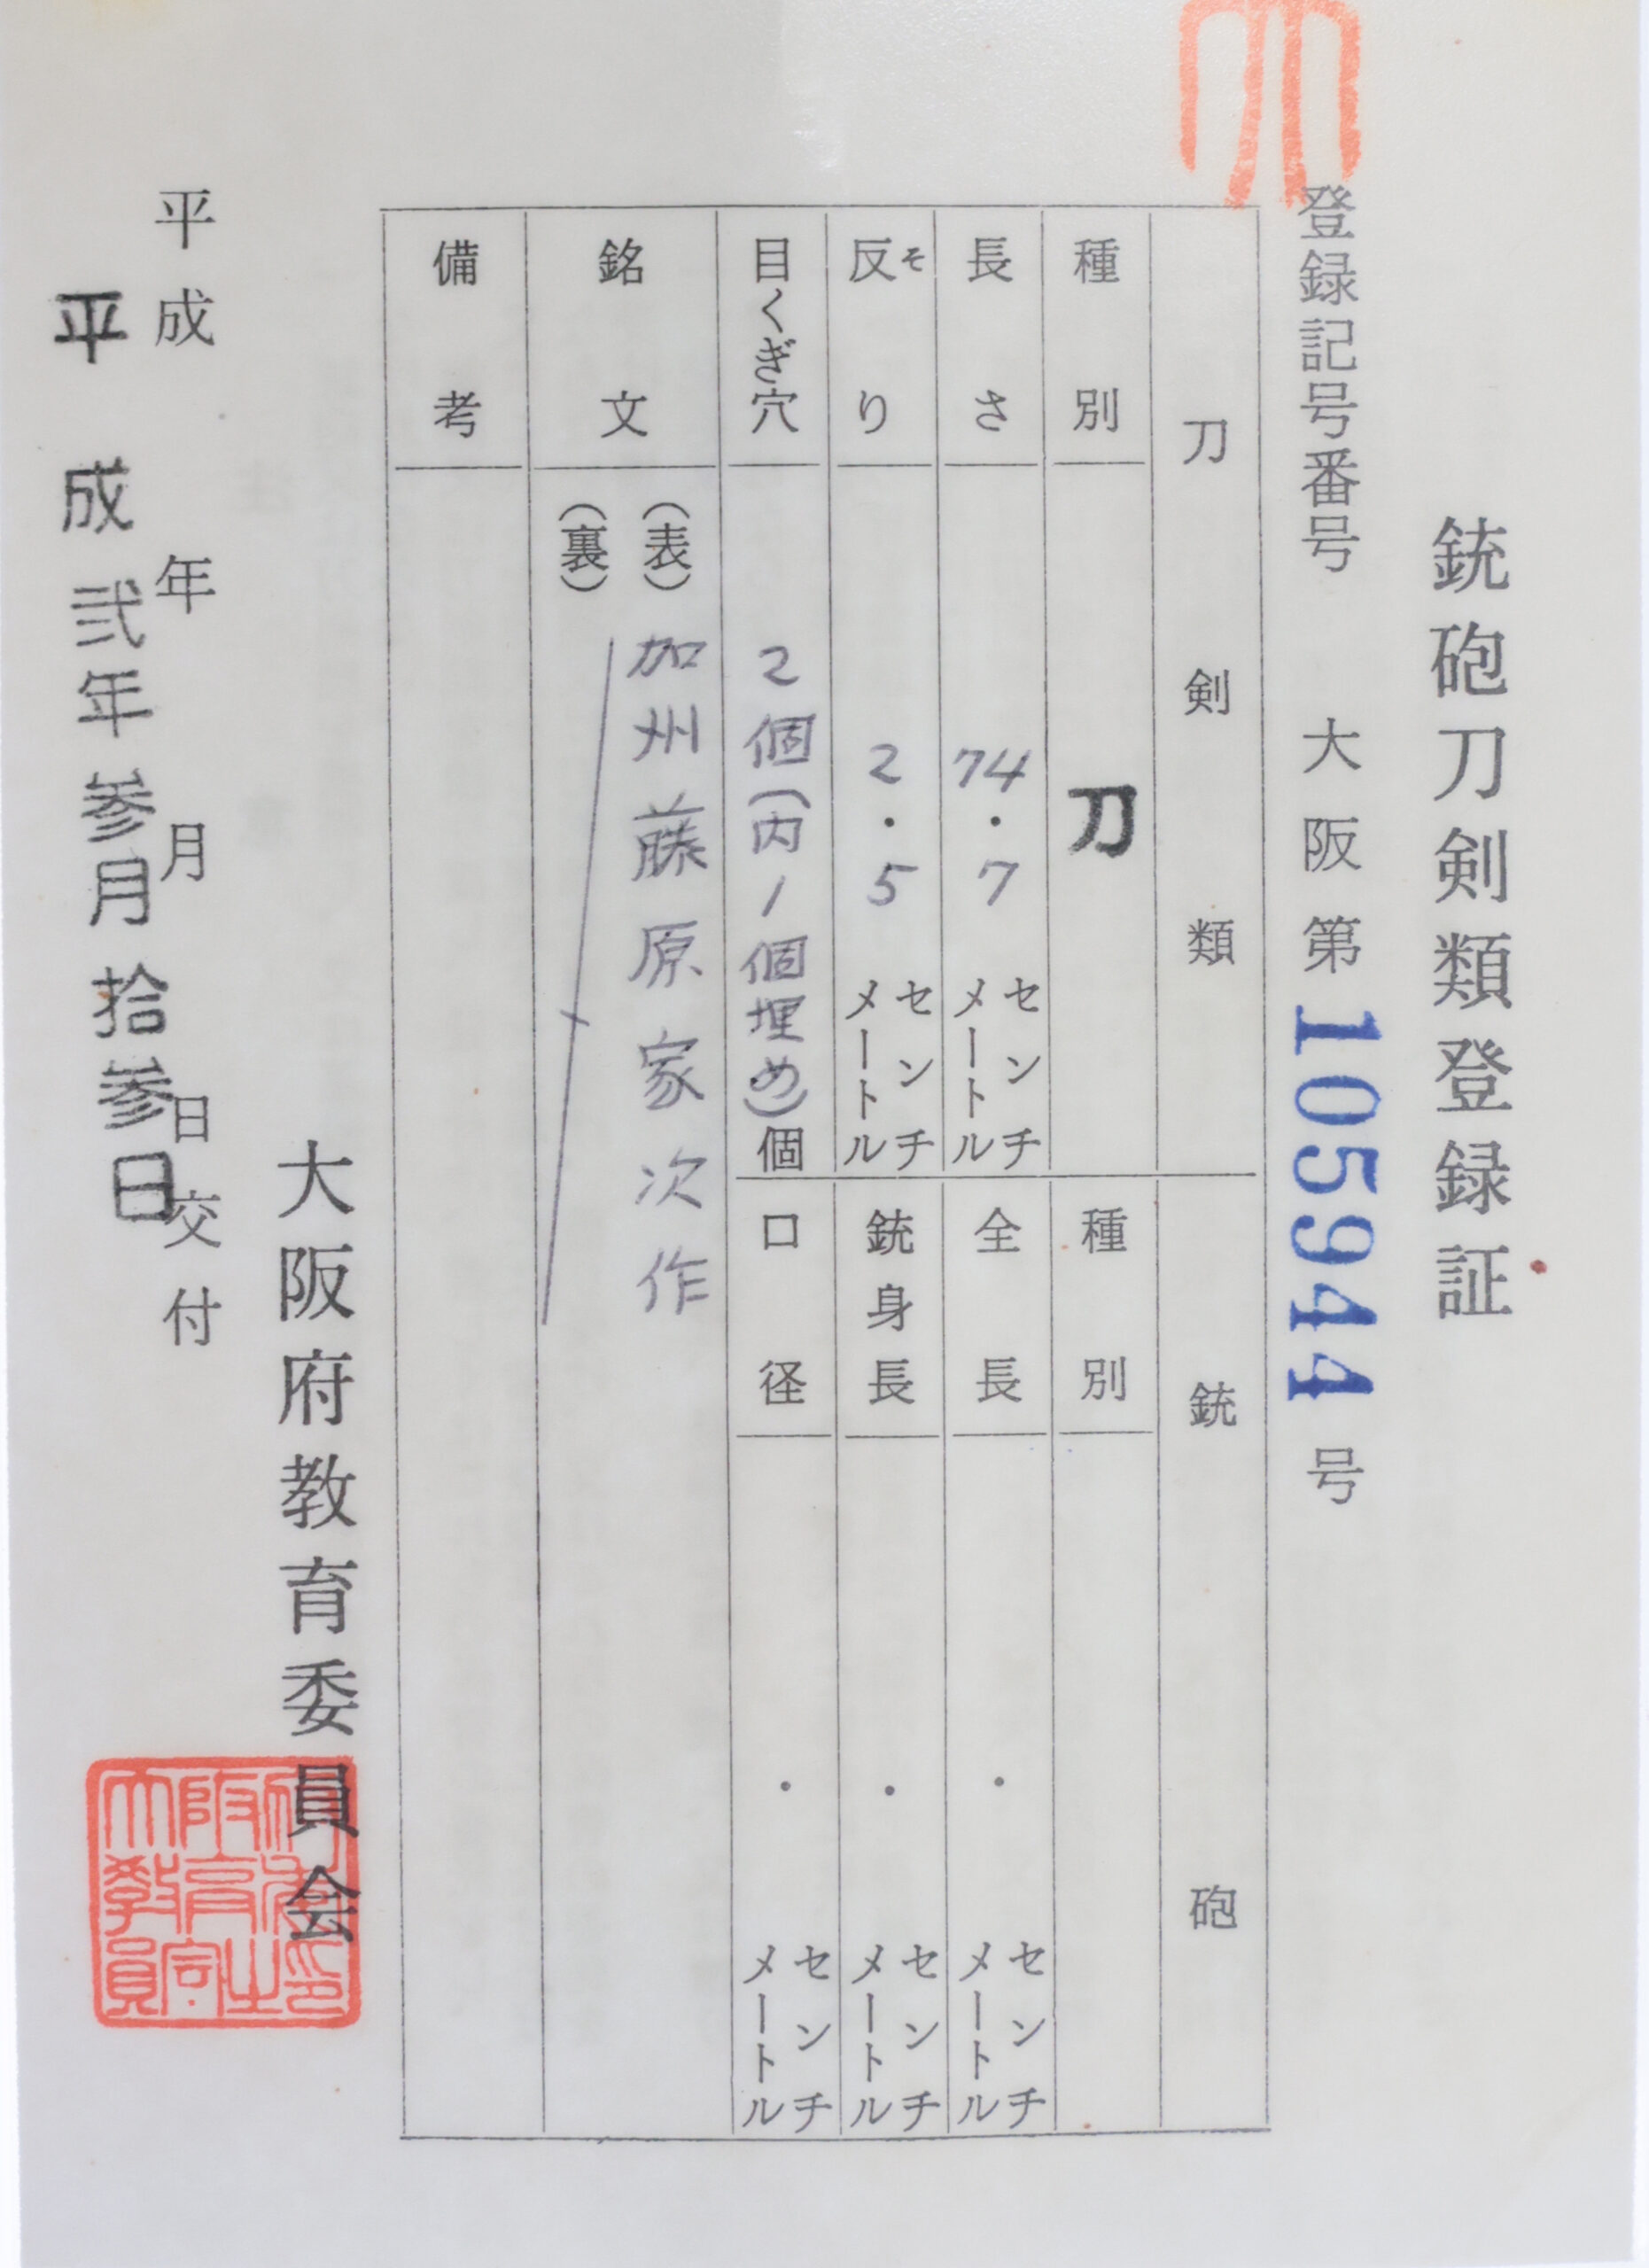 銃砲刀剣類登録証
登録記号番号 大阪第105944号
刀剣類
種別 刀
長さ 74・7 センチメートル
反り 2・5 センチメートル
そ
目くぎ穴 2個(内1個埋め)個
銘文 (表) 加州藤原家次作
(裏)
備考
銃砲
種別
全長 ・ センチメートル
銃身長 ・ センチメートル
口径 ・ センチメートル
大阪府教育委員会
平成 年 月 日交付
平成弐年参月拾参日